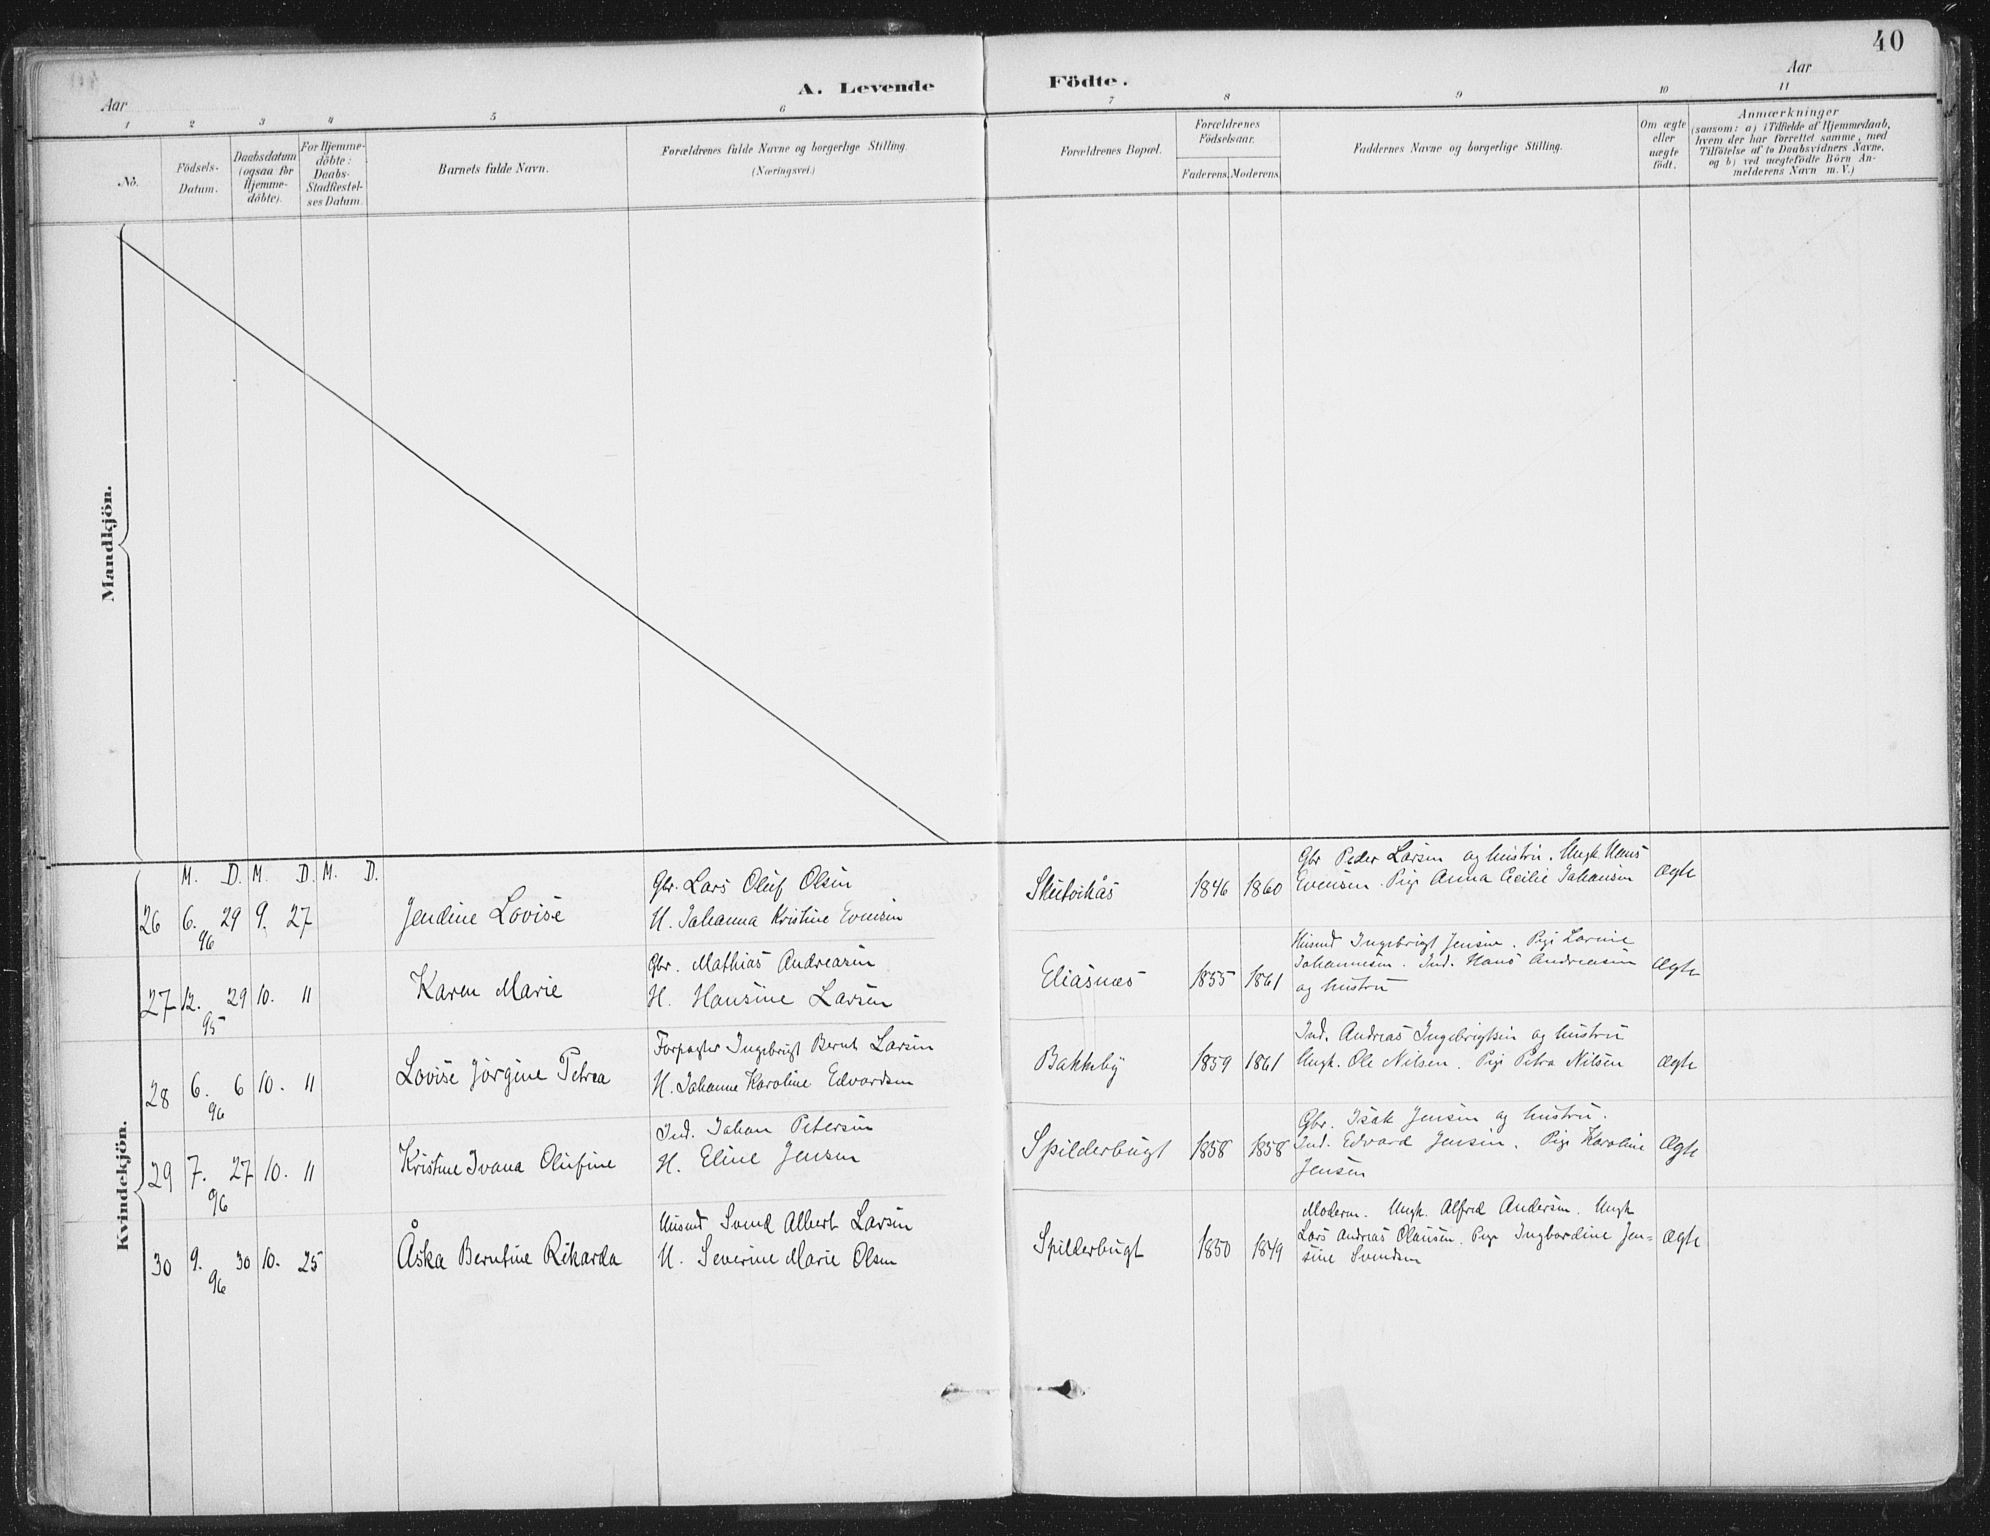 40
A. Levende Födte.
Aar
Aar
1 2 3 4 5 6 7 8 9 10 11
No.
Födsels-
Datum.
Daabsdatum
(ogsaa for
Hjemme-
döbte).
For Hjemme-
döbte:
Daabs-
Stadfæstel-
ses Datum.
Barnets fulde Navn.
Forældrenes fulde Navne og borgerlige Stilling.
(Næringsvei.)
Forældrenes Bopæl.
Forældrenes
Födselsaar.
Faderens. Moderens.
Faddernes Navne og borgerlige Stilling.
Om ægte
eller
uægte
födt.
Anmærkninger
(saasom: a) i Tilfælde af Hjemmedaab,
hvem der har forrettet samme, med
Tilföielse af to Daabsvidners Navne,
og b) ved uægtefödte Börn An-
melderens Navn m. V.)
Mandkjön.
Kvindekjön.
M. D. M. D. M. D.
26 6. 29 9. 27
96
Jendine Lovise
Gbr. Lars Oluf Olsen
H. Johanna Kristine Evensen
1846 1860
Gbr Peder Larsen og hustru. Ungk. Hans
Evensen. Pige Anna Cecilie Johansen
Ægte
27 12. 29 10. 11
95
Karen Marie
Gbr. Mathias Andreasen
H. Hansine Larsen
Eliasnes
1855 1861
Husmd Ingebrigt Jensen. Pige Lovine
Johannesen. Ind. Hans Andreasen
og hustru
Ægte
28 6. 6 10. 11
96
Lovise Jørgine Petrea
Forpagter Ingebrigt Bernt Larsen
H. Johanne Karoline Edvardsen
Bakkeby
1859 1861
Ind. Andreas Ingebrigtsen og hustru
Ungk. Ole Nilsen. Pige Petra Nilsen
Ægte
29 7. 27 10. 11
96
Kristine Ivana Olufine
Ind. Johan Petersen
H. Eline Jensen
Spilderbugt
1858 1858
Gbr. Isak Jensen og hustru.
Ind. Edvard Jensen. Pige Karoline
Jensen
Ægte
30 9. 30 10. 25
96
Åska Berntine Rikarda
Husmd Svend Albert Larsen
H. Severine Marie Olsen
Spilderbugt
1850 1849
Moderen. Ungk. Alfred Andersen. Ungk
Lars Andreas Olausen. Pige Ingbordine Jen-
sine Svendsen
Ægte